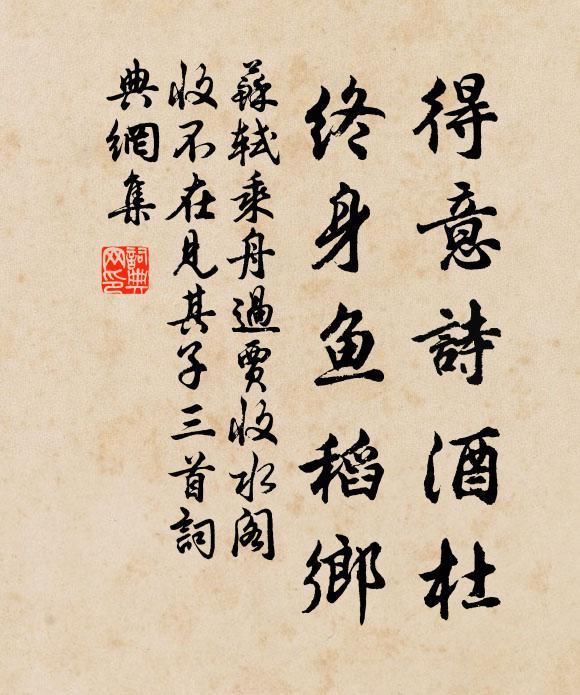 得意詩酒杜
終身鱼稻鄉
蘇軾乘舟過賈收水閣
收不在見其子三首詞
典網集
詞典
网印